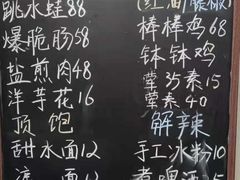 跳水蛙88
爆脆肠58
盐煎肉48
洋芋花16
顶饱
甜水面12
凉面12
(红油/藤椒)
棒棒鸡68
钵钵鸡
荤35素15
荤素40
解辣
手工冰粉10
煮啤酒